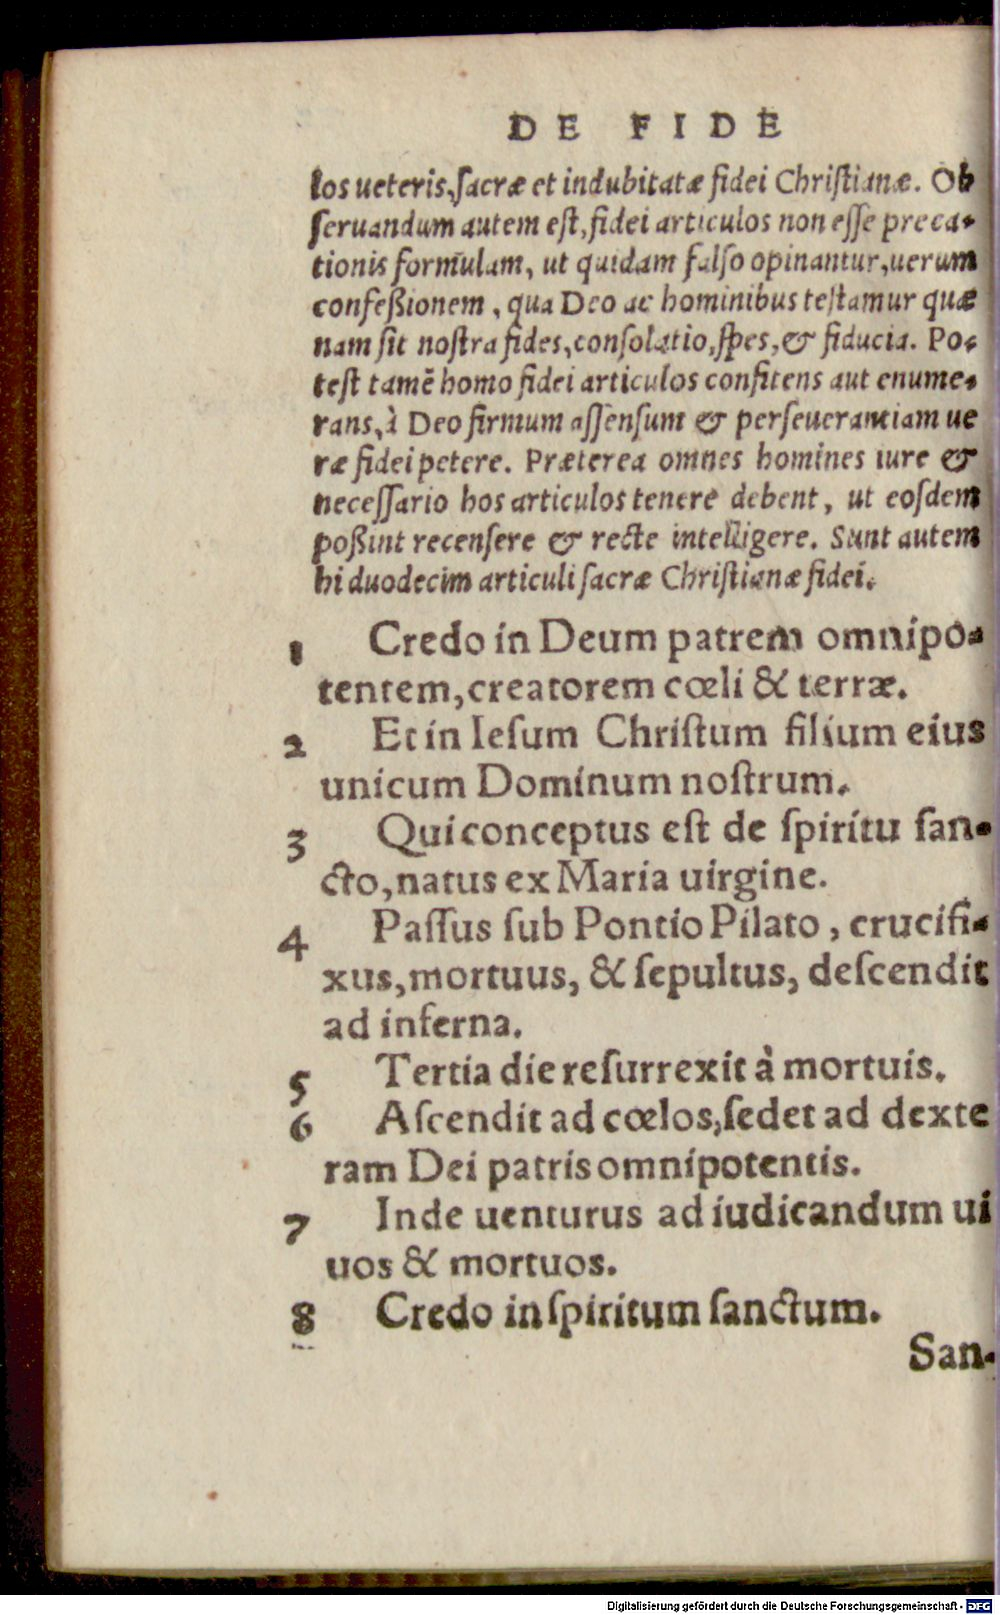 DE FIDE
los ueteris, sacræ et indubitatæ fidei Christianæ. Ob
seruandum autem est, fidei articulos non esse preca-
tionis formulam, ut quidam falso opinantur, uerum
confeßionem, qua Deo ac hominibus testamur quæ
nam sit nostra fides, consolatio, spes, & fiducia. Po-
test tamē homo fidei articulos confitens aut enume-
rans, à Deo firmum assensum & perseuerantiam ue
ræ fidei petere. Præterea omnes homines iure &
necessario hos articulos tenere debent, ut eosdem
poßint recensere & recte intelligere. Sunt autem
hi duodecim articuli sacræ Christianæ fidei.
1 Credo in Deum patrem omnipo-
tentem, creatorem cœli & terræ.
2 Et in Iesum Christum filium eius
unicum Dominum nostrum.
3 Qui conceptus est de spiritu san-
cto, natus ex Maria uirgine.
4 Passus sub Pontio Pilato, crucifi-
xus, mortuus, & sepultus, descendit
ad inferna.
5 Tertia die resurrexit à mortuis.
6 Ascendit ad cœlos, sedet ad dexte
ram Dei patris omnipotentis.
7 Inde uenturus ad iudicandum ui
uos & mortuos.
8 Credo in spiritum sanctum.
San-
Digitalisierung gefördert durch die Deutsche Forschungsgemeinschaft - DFG